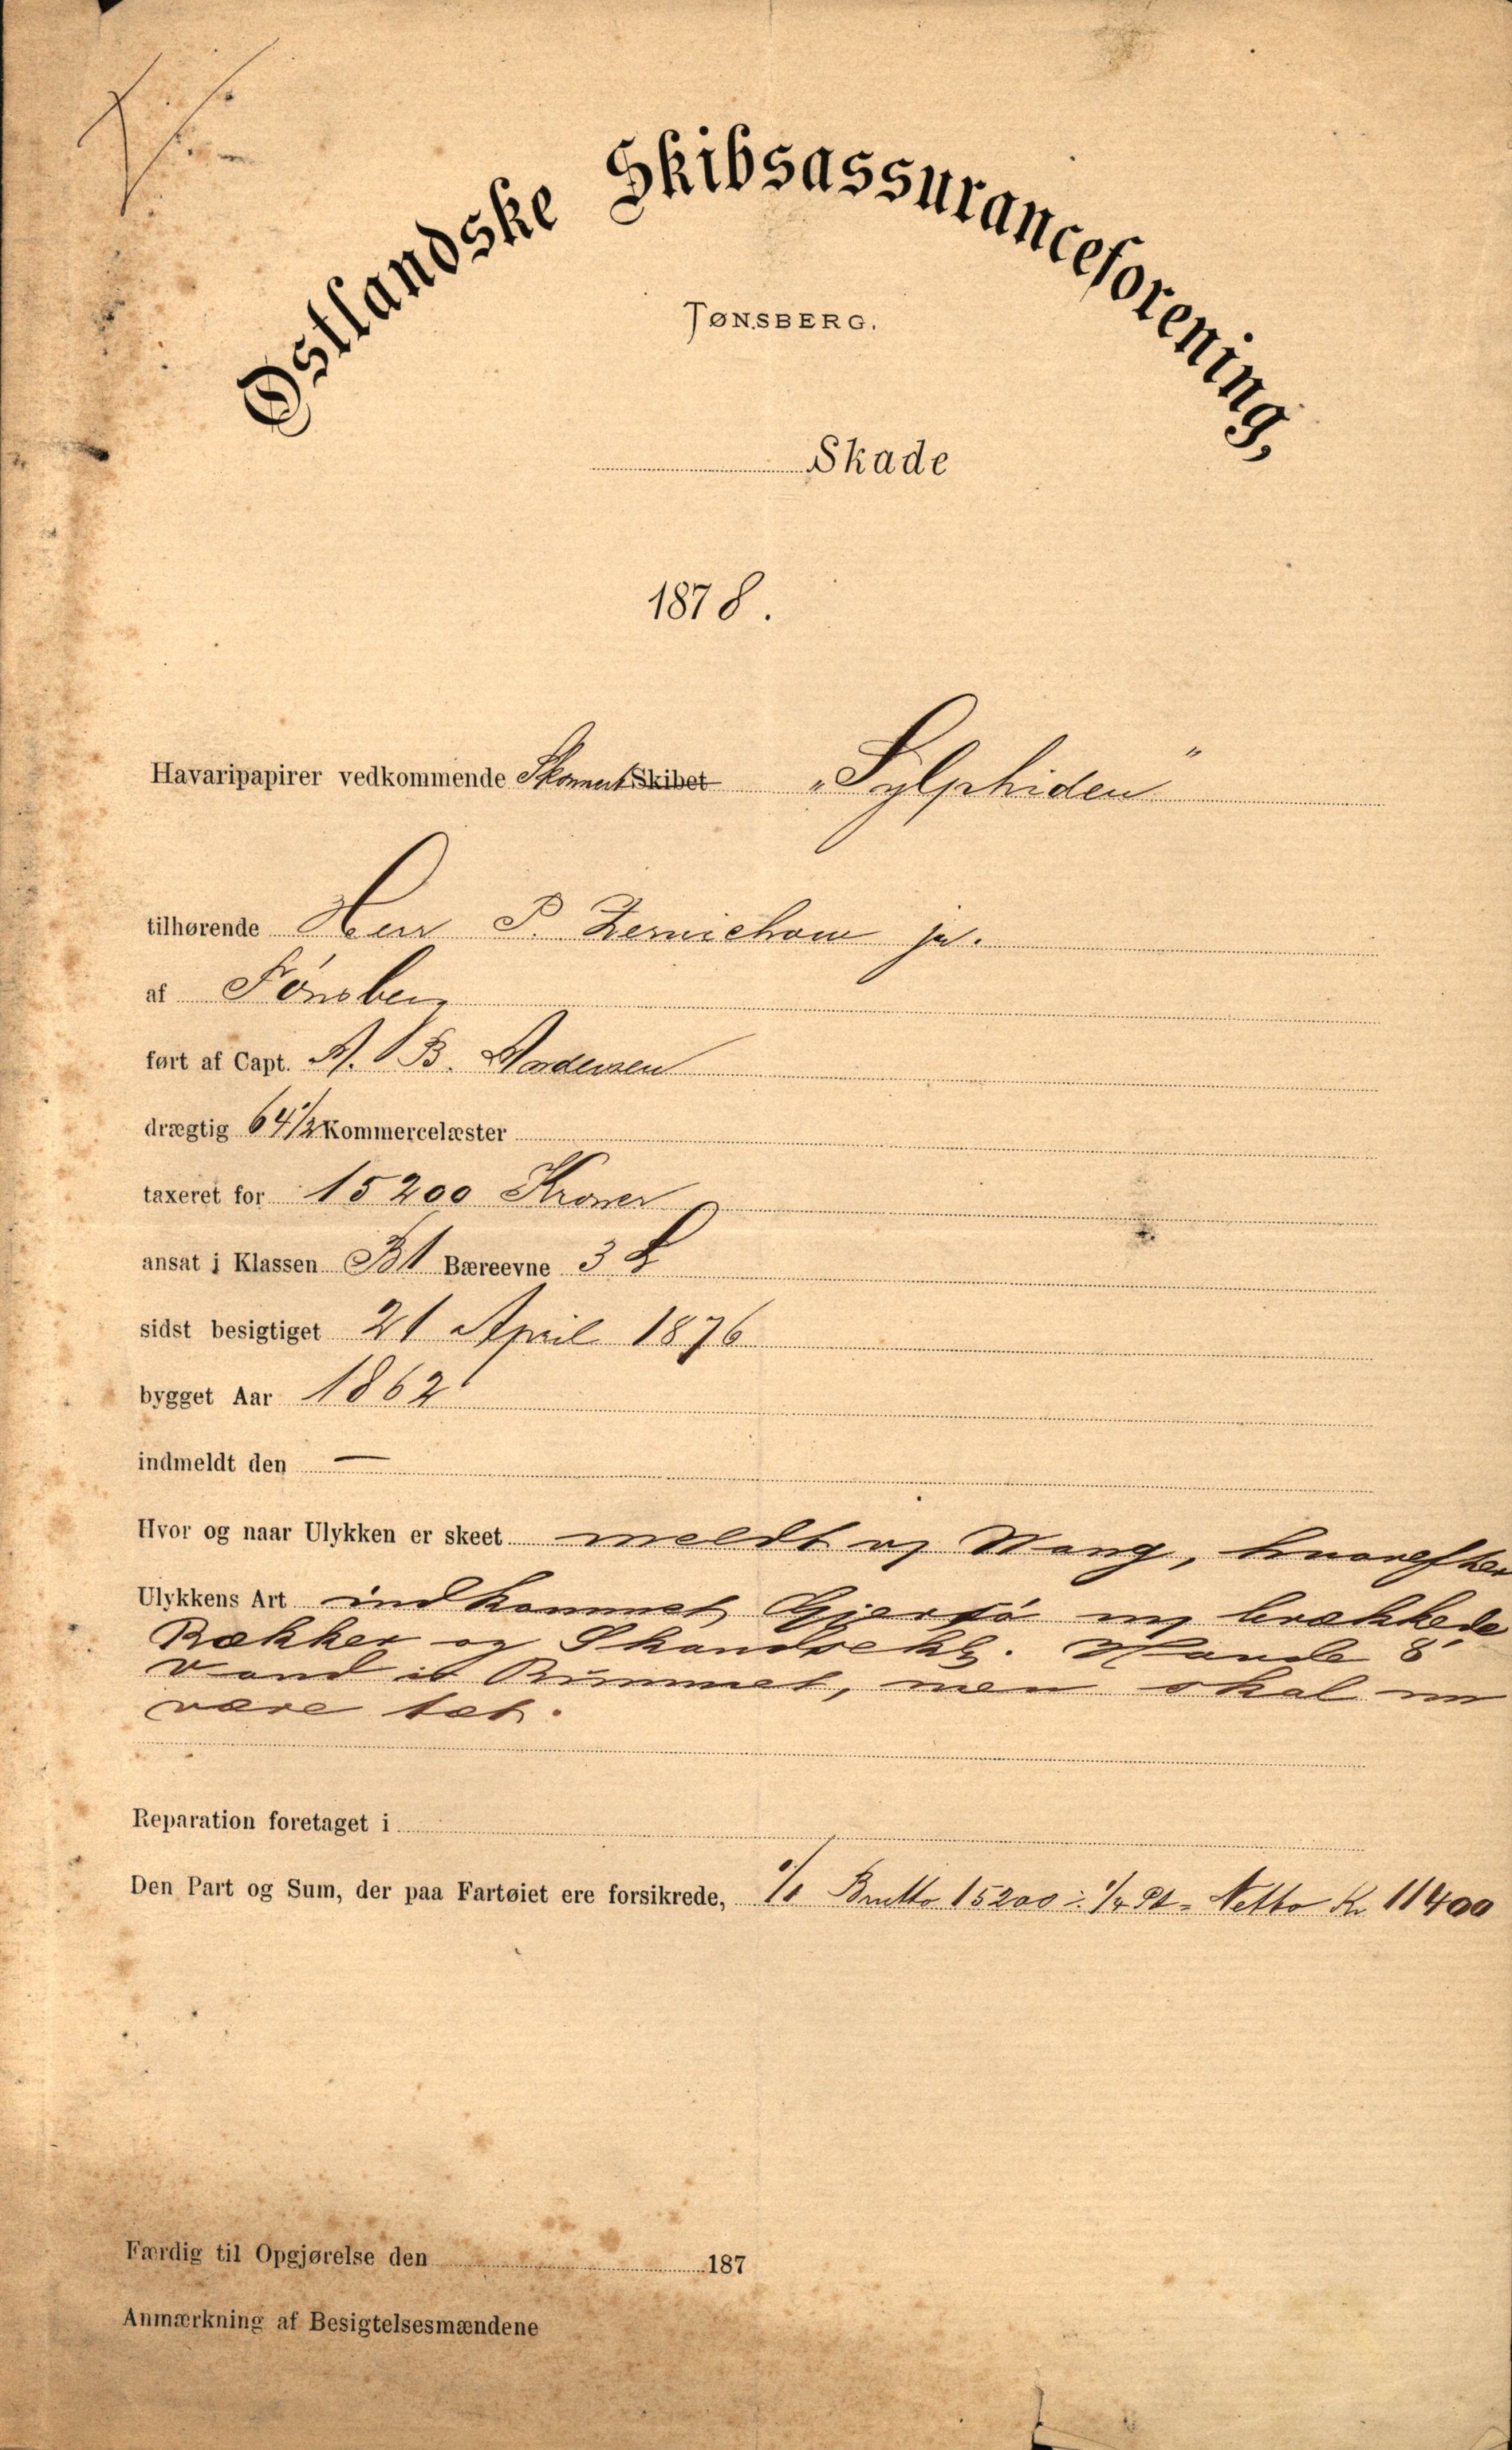 Østlandske Skibsassuranceforening,
TØNSBERG.
Skade
1878.
Havaripapirer vedkommende Skonnert Skibet „Sylphiden"
tilhørende Herr P. Zernichow jr.
af Tønsberg
ført af Capt. A. B. Andersen
drægtig 64 1/2 Kommercelæster
taxeret for 15200 Kroner
ansat i Klassen B1 Bæreevne 3 L
sidst besigtiget 21 April 1876
bygget Aar 1862
indmeldt den —
Hvor og naar Ulykken er skeet meldt af Wang, hvorefter
Ulykkens Art indkommet Gjersø brækkede
Rækker og Skandsekl. Havde 8'
Vand i Rummet, men skal nu
være tæt.
Reparation foretaget i
Den Part og Sum, der paa Fartøiet ere forsikrede, 1/1 Brutto 15200 ÷ 1/4 Pt = Netto Kr. 11400
Færdig til Opgjørelse den 187
Anmærkning af Besigtelsesmændene